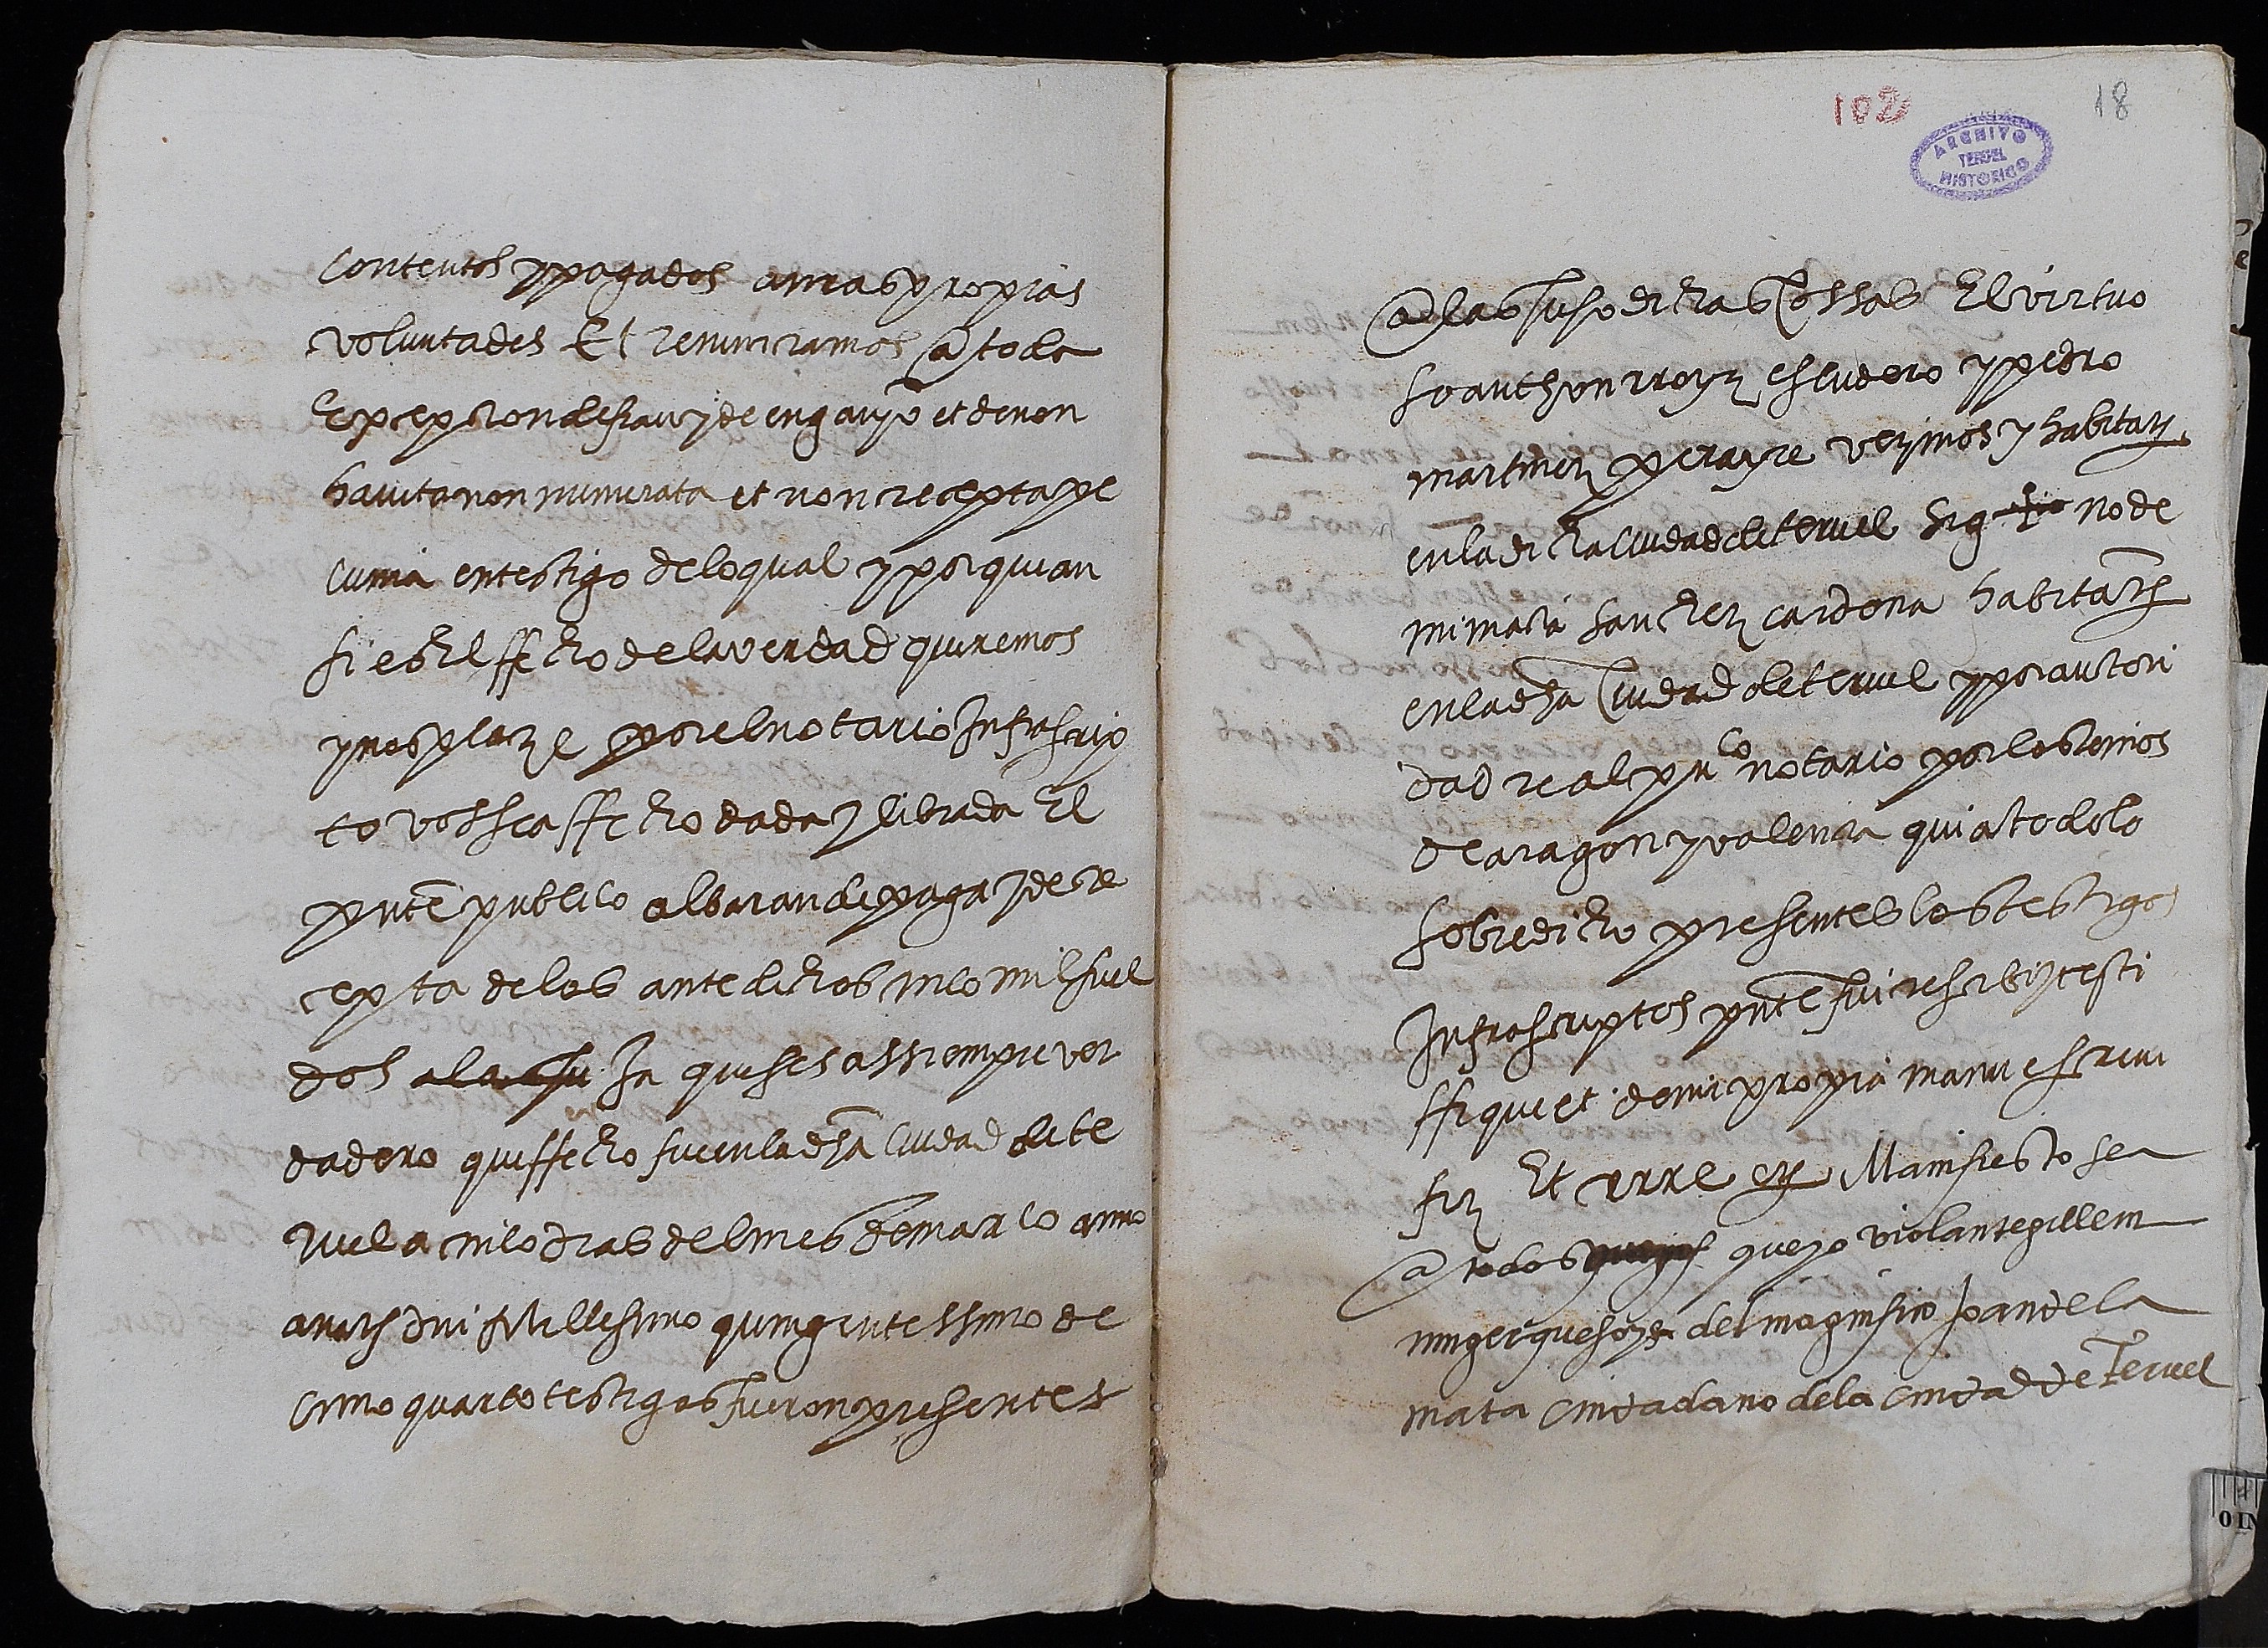 contentos y pagados a nras propias
voluntades Et renunciamos a toda
Excepcion de frau y de enganyo et de non
hauita non numerata et non recepta pe
cunia en testigo de lo qual y porque an
si es El ffecho de la verdad queremos
y nos plaze por el notario Infrascrip
to vos sea ffecho dada y librada El
pnte publico albaran de paga y de re
cepta de los ante dichos cinco mil suel
dos In que ses assiempre ver
dadero que ffecho fue en la dha ciudad de te
ruel a cinco dias del mes de março anno
a natis dni Millesimo quingentessimo de
cimo quarto testigos fueron presentes
102 18
ARCHIVO
TERUEL
HISTORICO
a las suso dichas cossas El virtuo
so anthon rroyz escudero y pedro
martinez perayre vezinos y habitan
en la dicha ciudad de teruel Sig no de
mi macia sanchez cardona habitant
en la dha Ciudad de teruel y por autori
dad real puco notario por los reinos
de aragon y valencia qui a todo lo
sobredicho presente los testigos
Infrascriptos pnte fui rescibi y testi
ffique et de mi propia mano escreui
fiz Et cerre Manifiesto sea
a todos que yo violante gillem
muger que soy del magnifico Joan de la
mata ciudadano de la ciudad de Teruel
0 IN